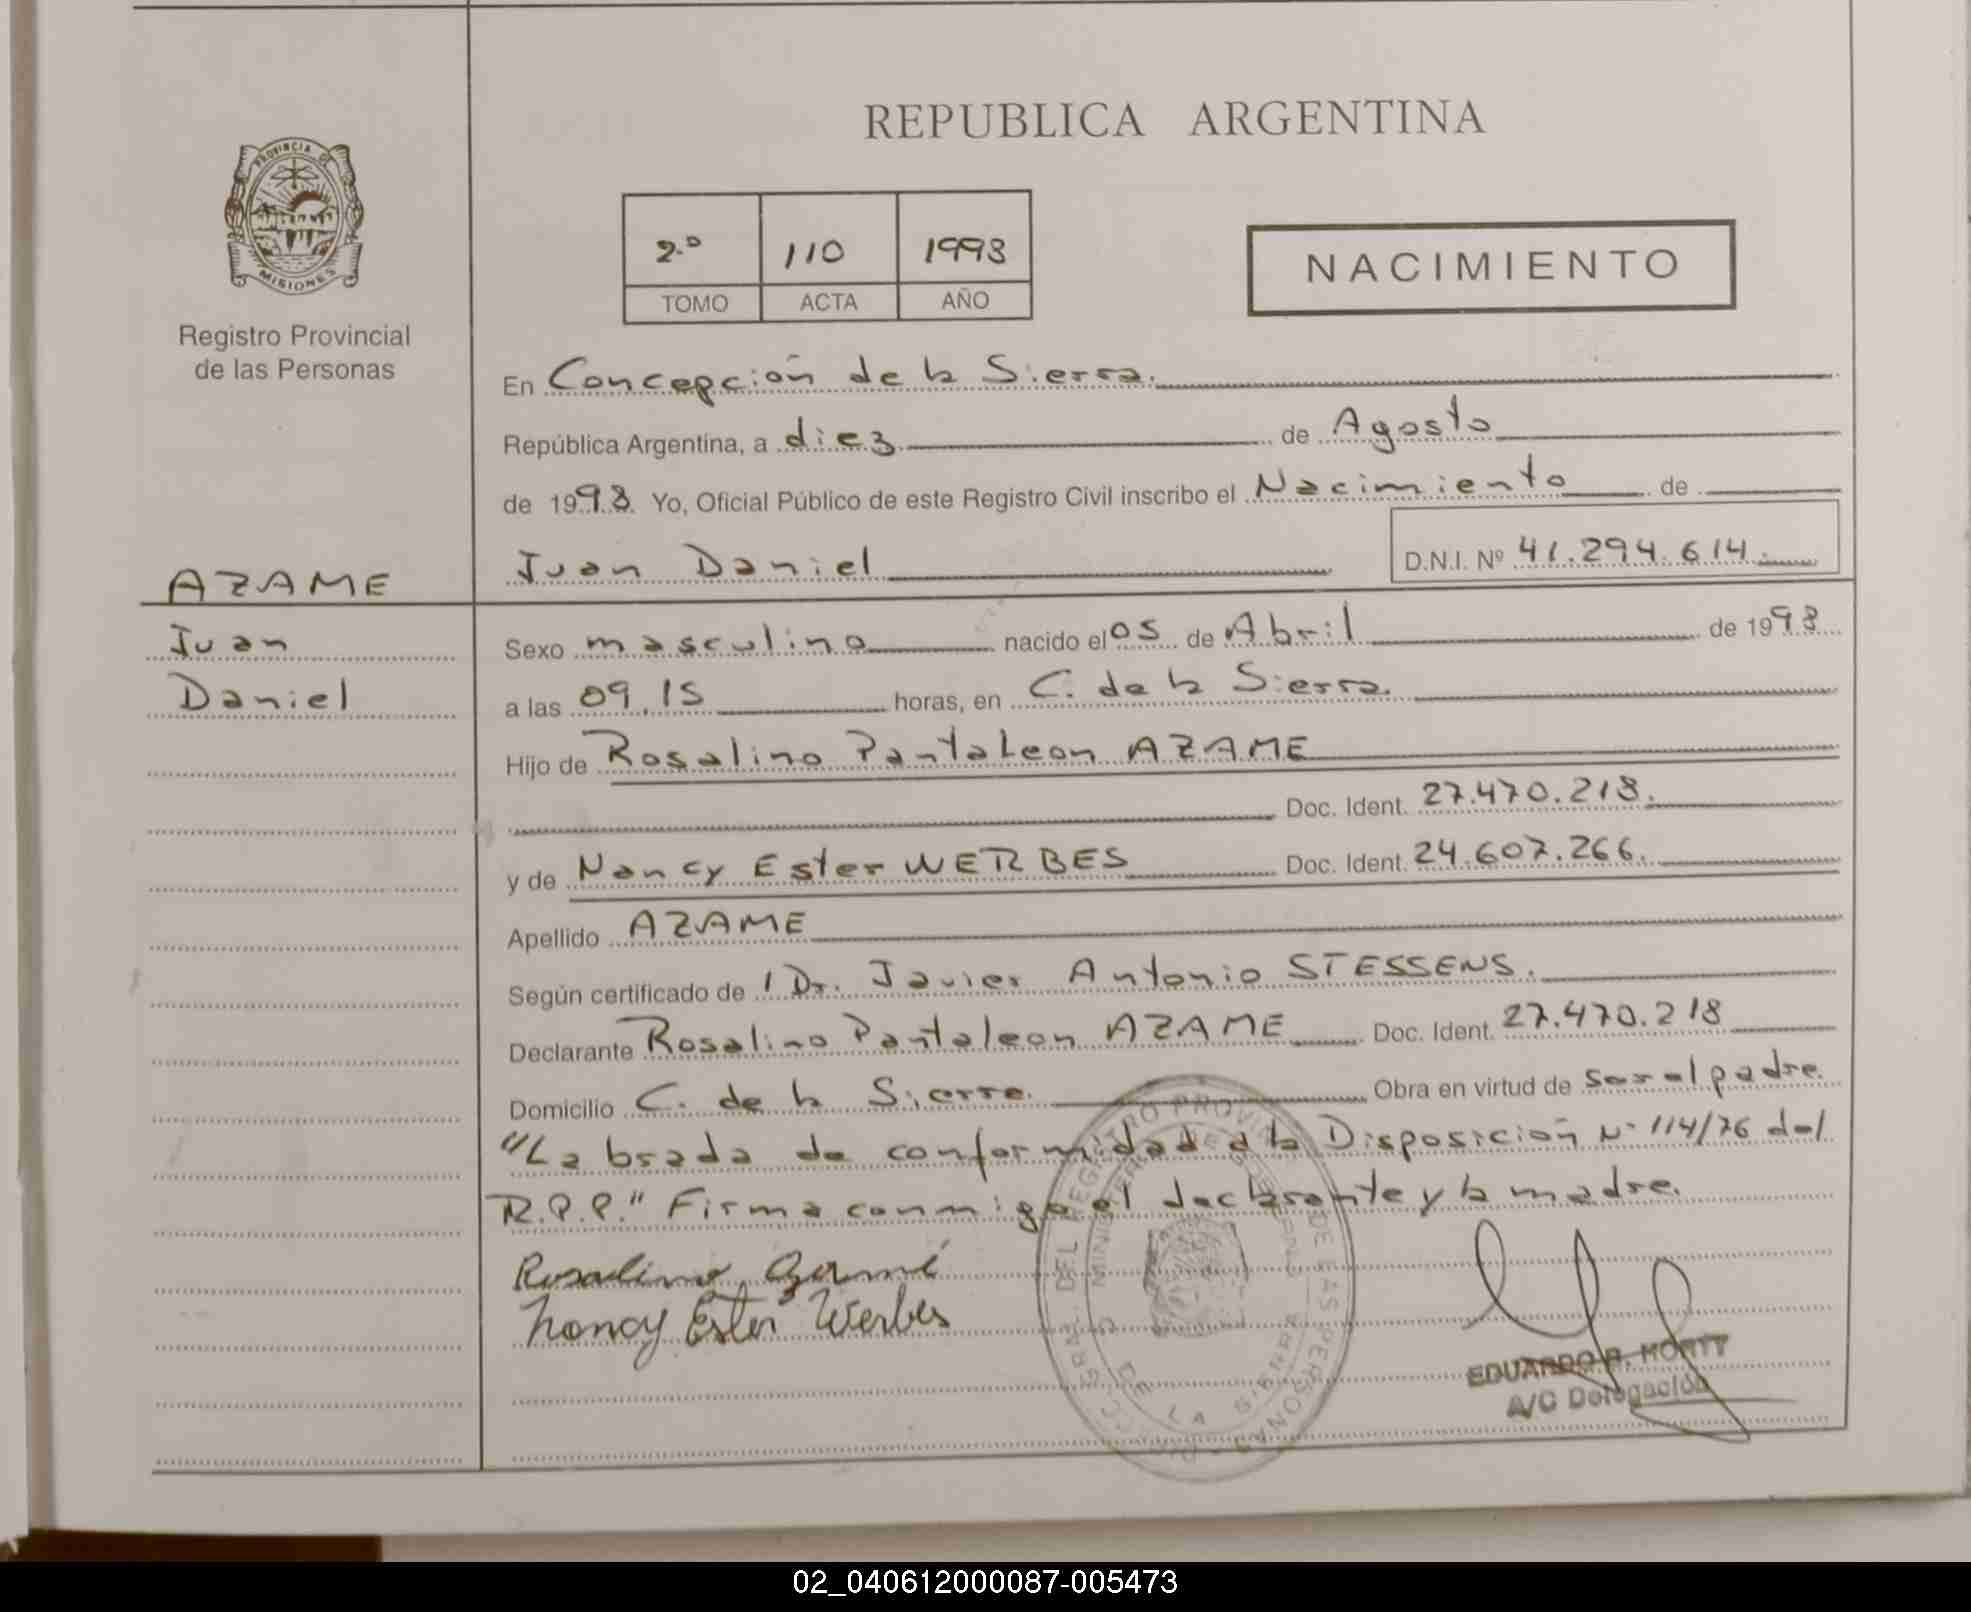 REPUBLICA ARGENTINA
PROVINCIA DE
MISIONES
Registro Provincial
de las Personas
2.º 110 1998
TOMO ACTA AÑO
NACIMIENTO
En Concepción de la Sierra.
República Argentina, a diez de Agosto
de 1998. Yo, Oficial Público de este Registro Civil inscribo el Nacimiento de
Juan Daniel D.N.I. Nº 41.294.614.
AZAME
Juan
Daniel
Sexo masculino nacido el 05 de Abril de 1998
a las 09,15 horas, en C. de la Sierra.
Hijo de Rosalino Pantaleon AZAME
Doc. Ident. 27.470.218.
y de Nancy Ester WERBES Doc. Ident. 24.607.266.
Apellido AZAME
Según certificado de / Dr. Javier Antonio STESSENS.
Declarante Rosalino Pantaleon AZAME Doc. Ident. 27.470.218
Domicilio C. de la Sierra. Obra en virtud de ser el padre.
"Labrada de conformidad a la Disposición Nº 114/76 del
R.P.P." Firma conmigo el declarante y la madre.
Rosalino Azamé
Nancy Ester Werbes
DEL REGISTRO PROVINCIAL DE LAS PERSONAS
DE LA SIERRA
EDUARDO R. MORTT
A/C Delegación
02_040612000087-005473